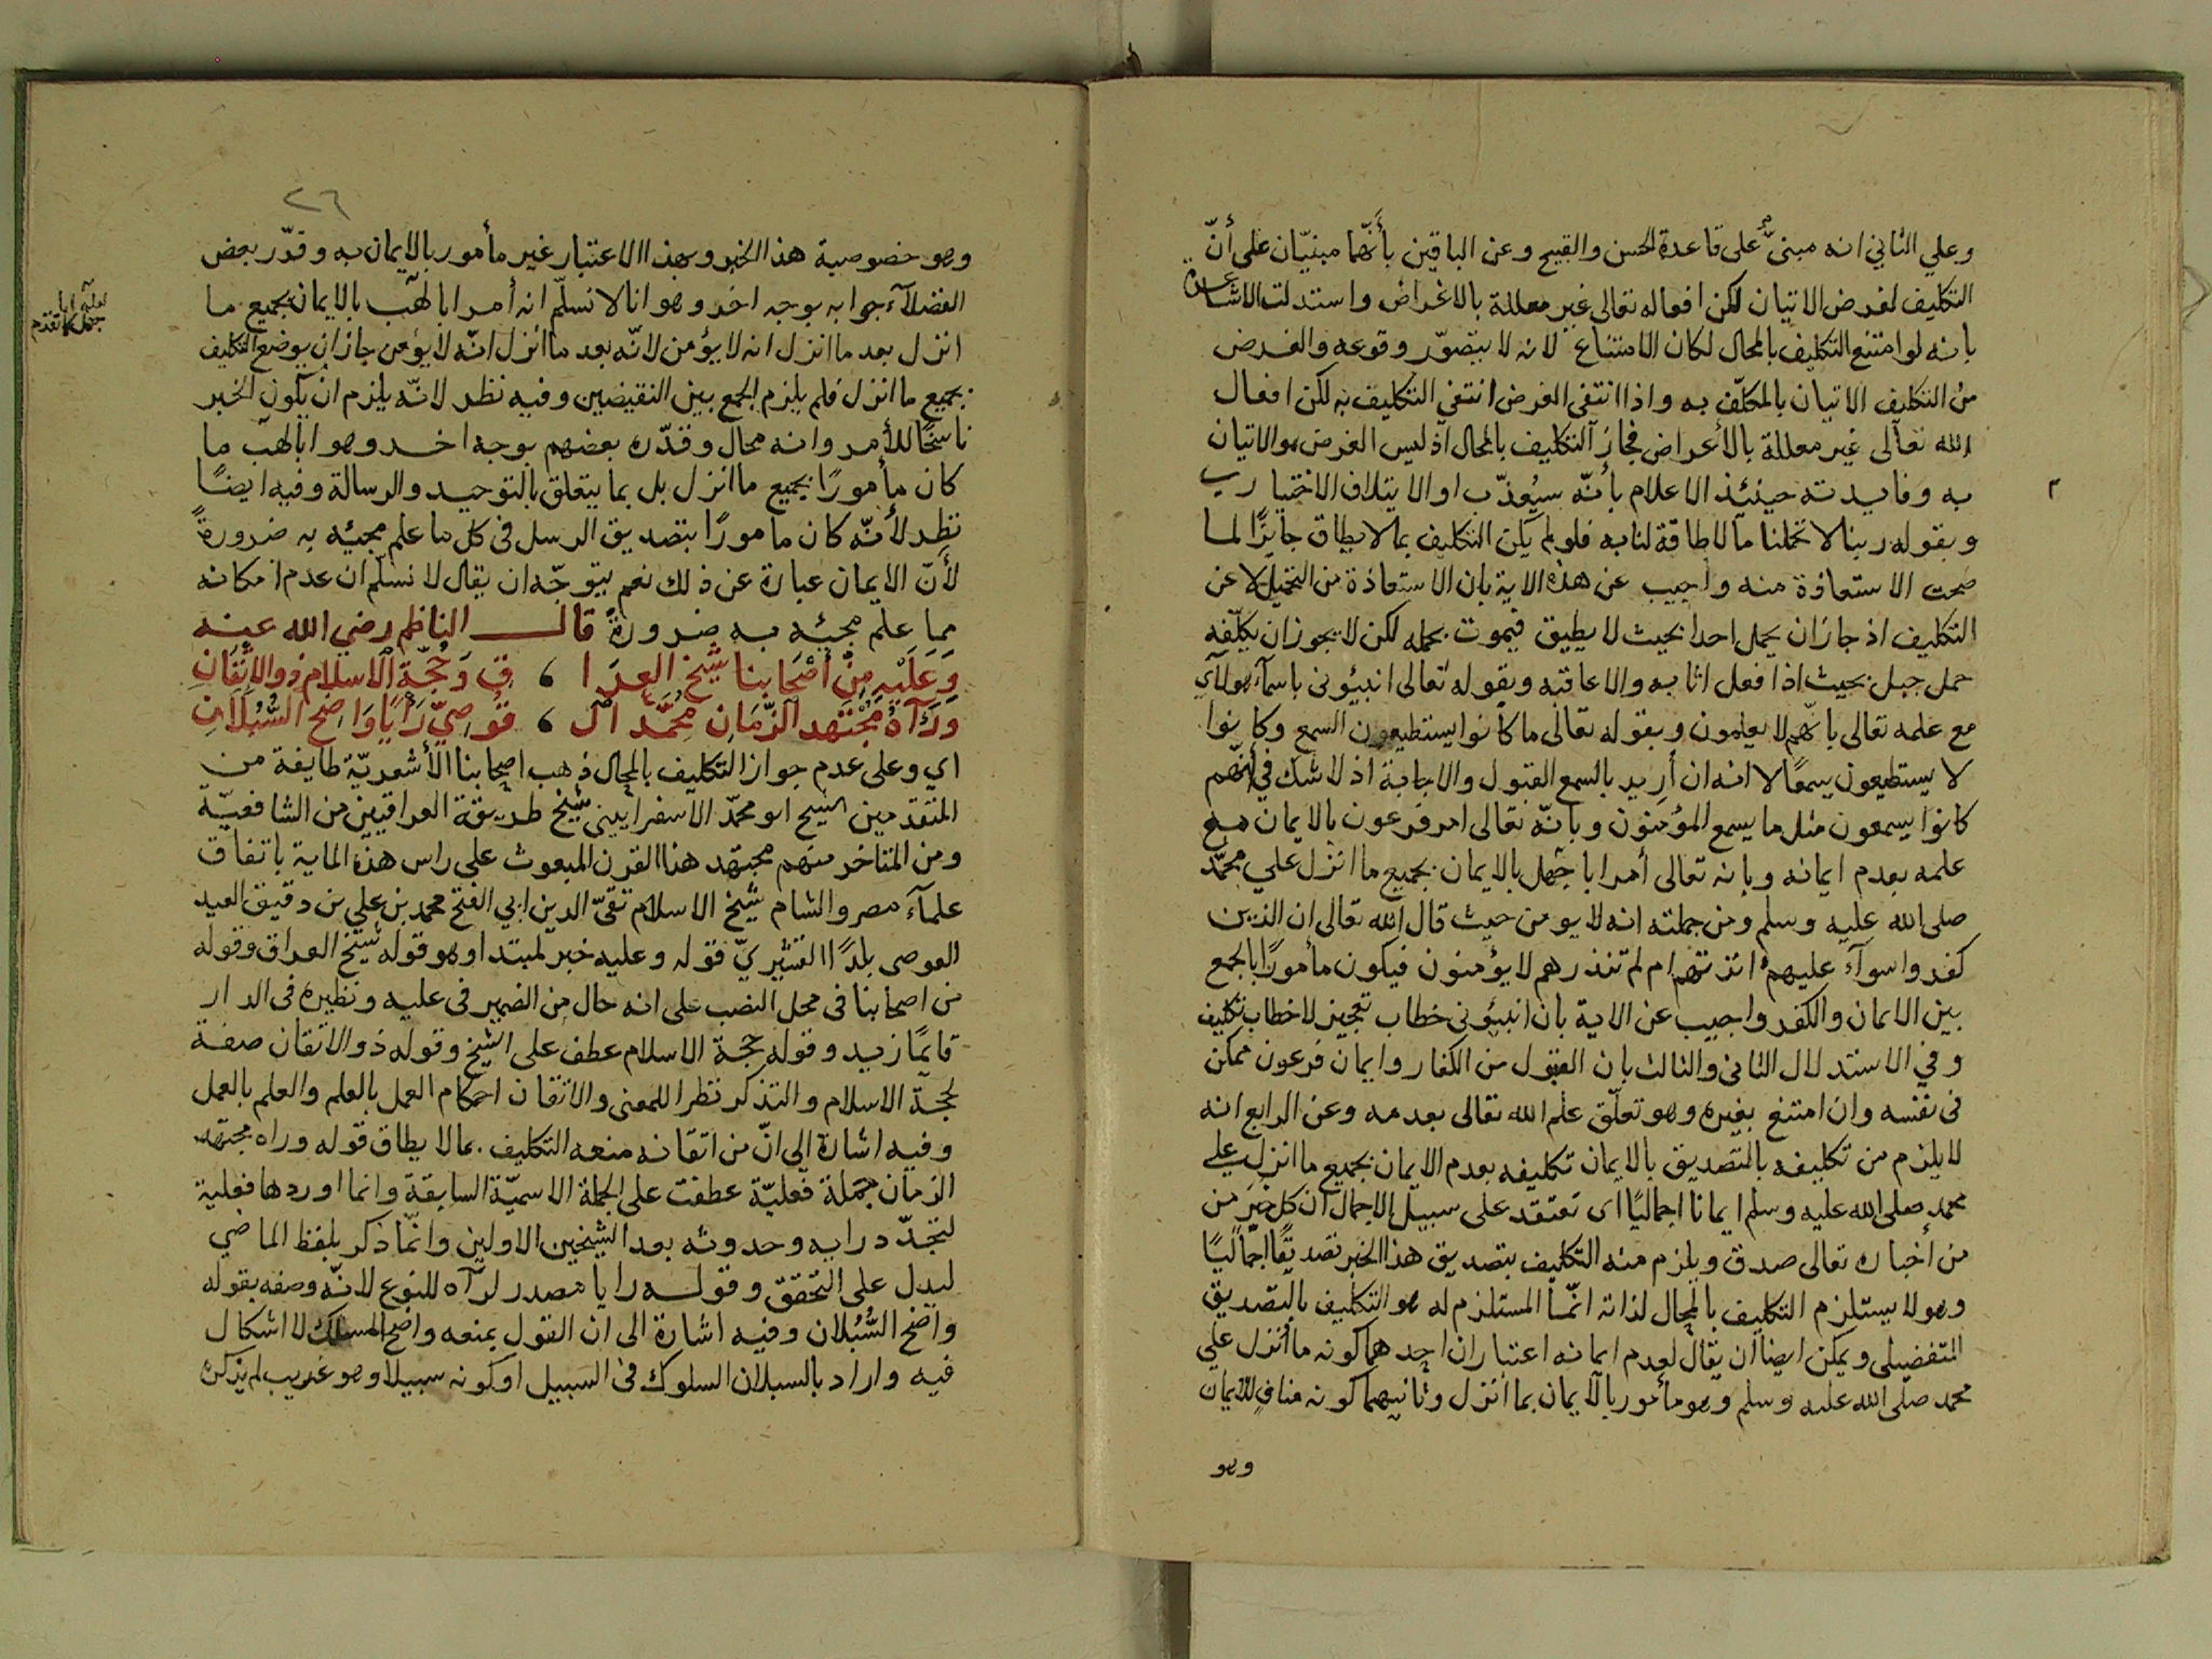 وعلي الثاني انه مبنىٌّ على قاعدة الحسن والقبيح وعن الباقين بأنّهما مبنيّان على أنّ
التكليف لغرض الاتيان لكن افعاله تعالى غير معللة بالاغراض واستدلت الاشاعرة
بانه لو امتنع التكليف بالمحال لكان الامتناع لانه لا يتصوّر وقوعه والغرض
من التكليف الاتيان بالمكلّف به واذا انتفى الغرض انتفى التكليف به لكن افعال
الله تعالى غير معللة بالأعراض فجاز التكليف بالمحال اذ ليس الغرض هو الاتيان
به وفايدته حينئذ الاعلام بأنّه سيُعذّب او الابتلاف الاختياري
٢
وبقوله ربنا لا تحملنا ما لا طاقة لنا به فلو لم يكن التكليف بما لا يطاق جايزًا لما
صحت الاستعاذة منه واجيب عن هذه الاية بان الاستعاذة من التحميل لا عن
التكليف اذ جاز ان يحمل احدا بحيث لا يطيق فيموت بحمله لكن لا يجوز ان يكلّفه
حمل جبل بحيث اذا فعل اثابه والا عاقبه وبقوله تعالى انبيؤنى باسمآء هولآء
مع علمه تعالى بانّهم لا يعلمون وبقوله تعالى ما كانوا يستطيعون السمع وكانوا
لا يستطيعون سمعًا لا انه ان أريد بالسمع القبول والاجابة اذ لا شك في أنّهم
كانوا يسمعون مثل ما يسمع المؤمنون وبانّه تعالى امر فرعون بالايمان مع
علمه بعدم ايمانه وبانه تعالى أمر ابا جهل بالايمان بجميع ما انزل علي محمّد
صلى الله عليه وسلم ومن جملته انه لا يومن حيث قال الله تعالى ان الذين
كفروا سوآء عليهم أانذرتهم ام لم تنذرهم لا يؤمنون فيكون مأمورًا بالجمع
بين الايمان والكفر واجيب عن الاية بان انبيؤنى خطاب تعجيز لا خطاب تكليف
وفي الاستدلال الثانى والثالث بان القبول من الكفار وايمان فرعون ممكن
فى نفسه وان امتنع بغيره وهو تعلّق علم الله تعالى بعدمه وعن الرابع انه
لا يلزم من تكليفه بالتصديق بالايمان تكليفه بعدم الايمان بجميع ما انزل علي
محمد صلى الله عليه وسلم ايمانا اجماليًا اى نعتقد على سبيل الاجمال ان كل خبر من
من أخباره تعالى صدق ويلزم منه التكليف بتصديق هذا الخبر تصديقًا اجماليًا
وهو لا يستلزم التكليف بالمحال لذاته انّما المستلزم له هو التكليف بالتصديق
التفضيلى ويمكن ايضا ان يقال لعدم ايمانه اعتباران احدهما كونه ما أنزل علي
محمد صلى الله عليه وسلم وهو مأمور بالايمان بما انزل وثانيهما كونه منافي للايمان
وهو
٢٦
وهو خصوصية هذا الخبر وبهذا الاعتبار غير مأمور بالايمان به وقدّر بعض
الفضلآء جوابه بوجه اخر وهو انا لا نسلّم انه أمر ابا لهب بالايمان بجميع ما
انزل بعد ما انزل انه لا يؤمن لانّه بعد ما انزل انّه لا يؤمن جاز ان يوضع التكليف
بجميع ما انزل فلم يلزم الجمع بين النقيضين وفيه نظر لانّه يلزم ان يكون الخبر
ناسخًا للأمر وانه محال وقدّره بعضهم بوجه اخر وهو ابا لهب ما
كان مأمورًا بجميع ما انزل بل بما يتعلق بالتوحيد والرسالة وفيه ايضًا
نظر لأنّه كان مامورًا بتصديق الرسل فى كل ما علم مجيئه به ضرورةً
لأنّ الايمان عبارة عن ذلك نعم يتوجّه ان يقال لا نسلّم ان عدم امكانه
مما علم مجيئه به ضرورةً قال الناظم رضي الله عنه
وَعَلَيْهِ مِنْ أَصْحَابِنا شَيخُ العِرَا ، قِ وَحُجّةُ الاسلامِ ذو الاتقَانِ
ورَآهُ مُجْتَهد الزّمَانِ مُحَمّد ال ، قُوصِيّ رَأيًا وَاضِحَ السُّبُلَانِ
اي وعلى عدم جواز التكليف بالمحال ذهب اصحابنا الأشعريّة طايفة من
المتقدمين الشيخ ابو محمّد الاسفراييني شيخ طريقة العراقيين من الشافعيّة
ومن المتاخر منهم مجتهد هذا القرن المبعوث على راس هذه الماية باتفاق
علمآء مصر والشام شيخ الاسلام تقىّ الدين ابي الفتح محمد بن علي بن دقيق العيد
القوصى بلدًا القشيريّ قوله وعليه خبر لمبتدا وهو قوله شيخ العراق وقوله
من اصحابنا فى محل النصب على انه حال من الضمير فى عليه ونظيره فى الدار
قايمًا زيد وقوله حجة الاسلام عطف على الشيخ وقوله ذو الاتقان صفة
لحجة الاسلام والتذكر نظرا للمعنى والاتقان احكام العمل بالعلم والعلم بالعمل
وفيه اشارة الي انّ من اتقانه منعه التكليف بما لا يطاق قوله وراه مجتهد
الزمان جملة فعليّة عطفت على الجملة الاسميّة السابقة وانما اوردها فعلية
لتجدّد رايه وحدوثه بعد الشيخين الاولين وانّما ذكر بلفظ الماضي
ليدل على التحقق وقوله رايا مصدر لرآه للنوع لانّه وصفه بقوله
واضح السُّبُلان وفيه اشارة الى ان القول بمنعه واضح المسلك لا اشكال
فيه واراد بالسبلان السلوك فى السبيل او كونه سبيلا وهو غريب لم يذكره
لعله ابا
جهل كما تقدم